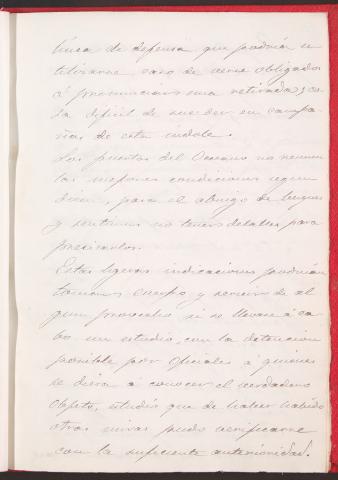 línea de defensa que podría u
tilizarse caso de verse obligados
á pronunciar una retirada, co
sa dificil de suceder en campa
ñas de esta indole.
Los puertos del Oceano no reunen
las mejores condiciones segun
dicen, para el abrigo de buques
y sentimos no tener detalles para
precisarlos.
Estas ligeras indicaciones podrian
tomar cuerpo y servir de al
gun provecho si se llevase á ca
bo un estudio, con la detencion
posible por Oficiales á quienes
se diera á conocer el verdadero
objeto, estudio que de haber habido
otras miras pudo verificarse
con la suficiente anterioridad.